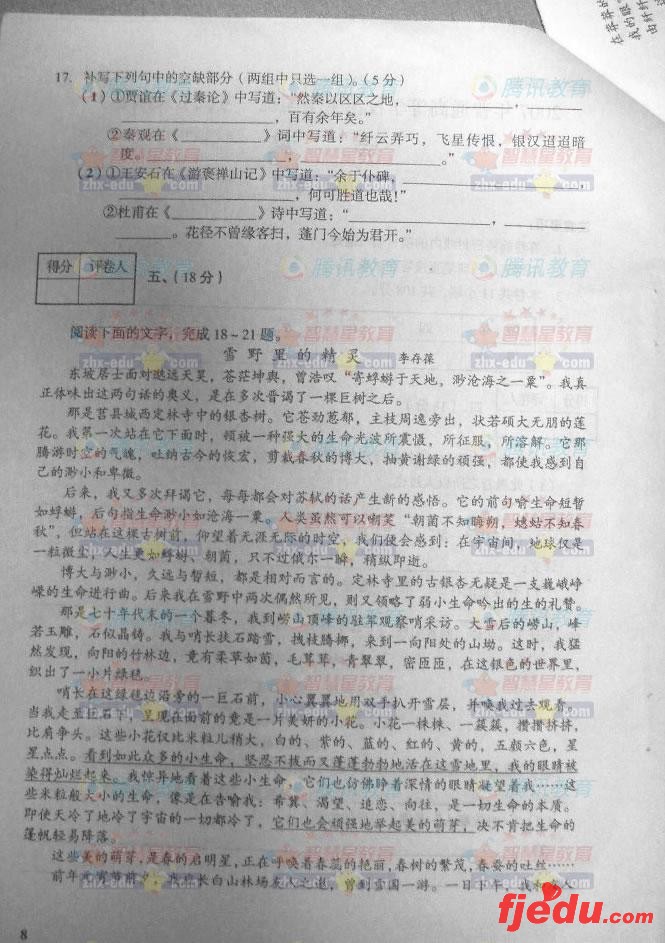 在莽莽的
我的眼
由纤纤
17. 补写下列句中的空缺部分（两组中只选一组）。（5分）
（1）①贾谊在《过秦论》中写道：“然秦以区区之地，____________，
____________，百有余年矣。”
②秦观在《____________》词中写道：“纤云弄巧，飞星传恨，银汉迢迢暗
度。____________，____________。”
（2）①王安石在《游褒禅山记》中写道：“余于仆碑，____________，
____________，何可胜道也哉！”
②杜甫在《____________》诗中写道：“____________，
____________。花径不曾缘客扫，蓬门今始为君开。”
得分 评卷人
五、（18分）
阅读下面的文字，完成18～21题。
雪野里的精灵 李存葆
东坡居士面对邈远天昊，苍茫坤舆，曾浩叹“寄蜉蝣于天地，渺沧海之一粟”。我真
正体味出这两句话的奥义，是在多次晋谒了一棵巨树之后。
那是莒县城西定林寺中的银杏树。它苍劲葱郁，主枝周逸旁出，状若硕大无朋的莲
花。我第一次站在它下面时，顿被一种强大的生命光波所震慑，所征服，所溶解。它那
腾游时空的气魄，吐纳古今的恢宏，剪裁春秋的博大，抽黄谢绿的顽强，都使我感到自
己的渺小和卑微。
后来，我又多次拜谒它，每每都会对苏轼的话产生新的感悟。它的前句喻生命短暂
如蜉蝣，后句指生命渺小如沧海一粟。人类虽然可以嘲笑“朝菌不知晦朔，蟪蛄不知春
秋”，但站在这棵古树前，仰望着无涯无际的时空，我们便会感到：在宇宙间，地球仅是
一粒微尘，人生更如蜉蝣、朝菌，只不过俄尔一瞬，稍纵即逝。
博大与渺小，久远与暂短，都是相对而言的。定林寺里的古银杏无疑是一支巍峨峥
嵘的生命进行曲。后来我在雪野中两次偶然所见，则又领略了弱小生命吟出的生的礼赞。
那是七十年代末的一个暮冬，我到崂山顶峰的驻军观察哨采访。大雪后的崂山，峰
若玉雕，石似晶铸。我与哨长扶石踏雪，拽枝腾挪，来到一向阳处的山坳。这时，我猛
然发现，向阳的竹林边，竟有柔草如茵，毛茸茸，青翠翠，密匝匝，在这银色的世界里，
织出了一小片绿毯。
哨长在这绿毯边沿旁的一巨石前，小心翼翼地用双手扒开雪层，并唤我过去观看。
当我走至巨石下，呈现在面前的竟是一片美妍的小花。小花一株株、一簇簇，攒攒挤挤，
比肩争头。这些小花仅比米粒儿稍大，白的、紫的、蓝的、红的、黄的，五颜六色，星
星点点。看到如此众多的小生命，坚忍不拔而又蓬蓬勃勃地活在这雪地里，我的眼睛被
染得灿烂起来。我惊异地看着这些小生命，它们也仿佛睁着深情的眼睛凝望着我……这
些米粒般大小的生命，像是在告喻我：希冀、渴望、追恋、向往，是一切生命的本质。
即使天冷了地冷了宇宙的一切都冷了，它们也会顽强地举起美的萌芽，决不肯把生命的
蓬帆轻易降落。
这些美的萌芽，是春的启明星，正在呼唤着春蕊的艳丽，春树的繁茂，春蚕的吐丝……
前年元宵节前夕，我应长白山林场友人之邀，曾到雪国一游。一日下午，我和友人
8
fjedu.com